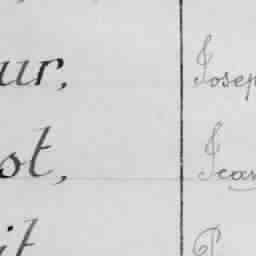 ur, Josep
st, Jean
it P